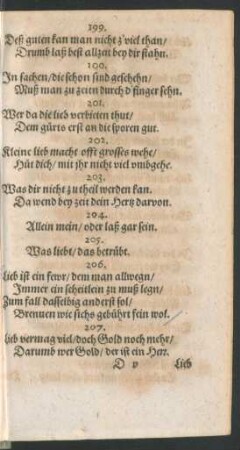 199.
Deß guten kan man nicht z'viel than/
Drumb laß best allzeit bey dir stahn.
200.
In sachen/ die schon sind geschehn/
Muß man zu zeiten durch d'finger sehn.
201.
Wer da die lieb verbieten thut/
Dem gürts erst an die sporen gut.
202.
Kleine lieb macht offt grosses wehe/
Hüt dich/ mit jhr nicht viel vmbgehe.
203.
Was dir nicht zu theil werden kan.
Da wend bey zeit dein Hertz darvon.
204.
Allein mein/ oder laß gar sein.
205.
Was liebt/ das betrübt.
206.
Lieb ist ein fewr/ dem man allwegn/
Immer ein scheitlein zu muß legn/
Zum fall dasselbig anderst sol/
Brennen wie sichs gebührt fein wol.
207.
Lieb vermag viel/ doch Gold noch mehr/
Darumb wer Gold/ der ist ein Herr.
D v Lieb